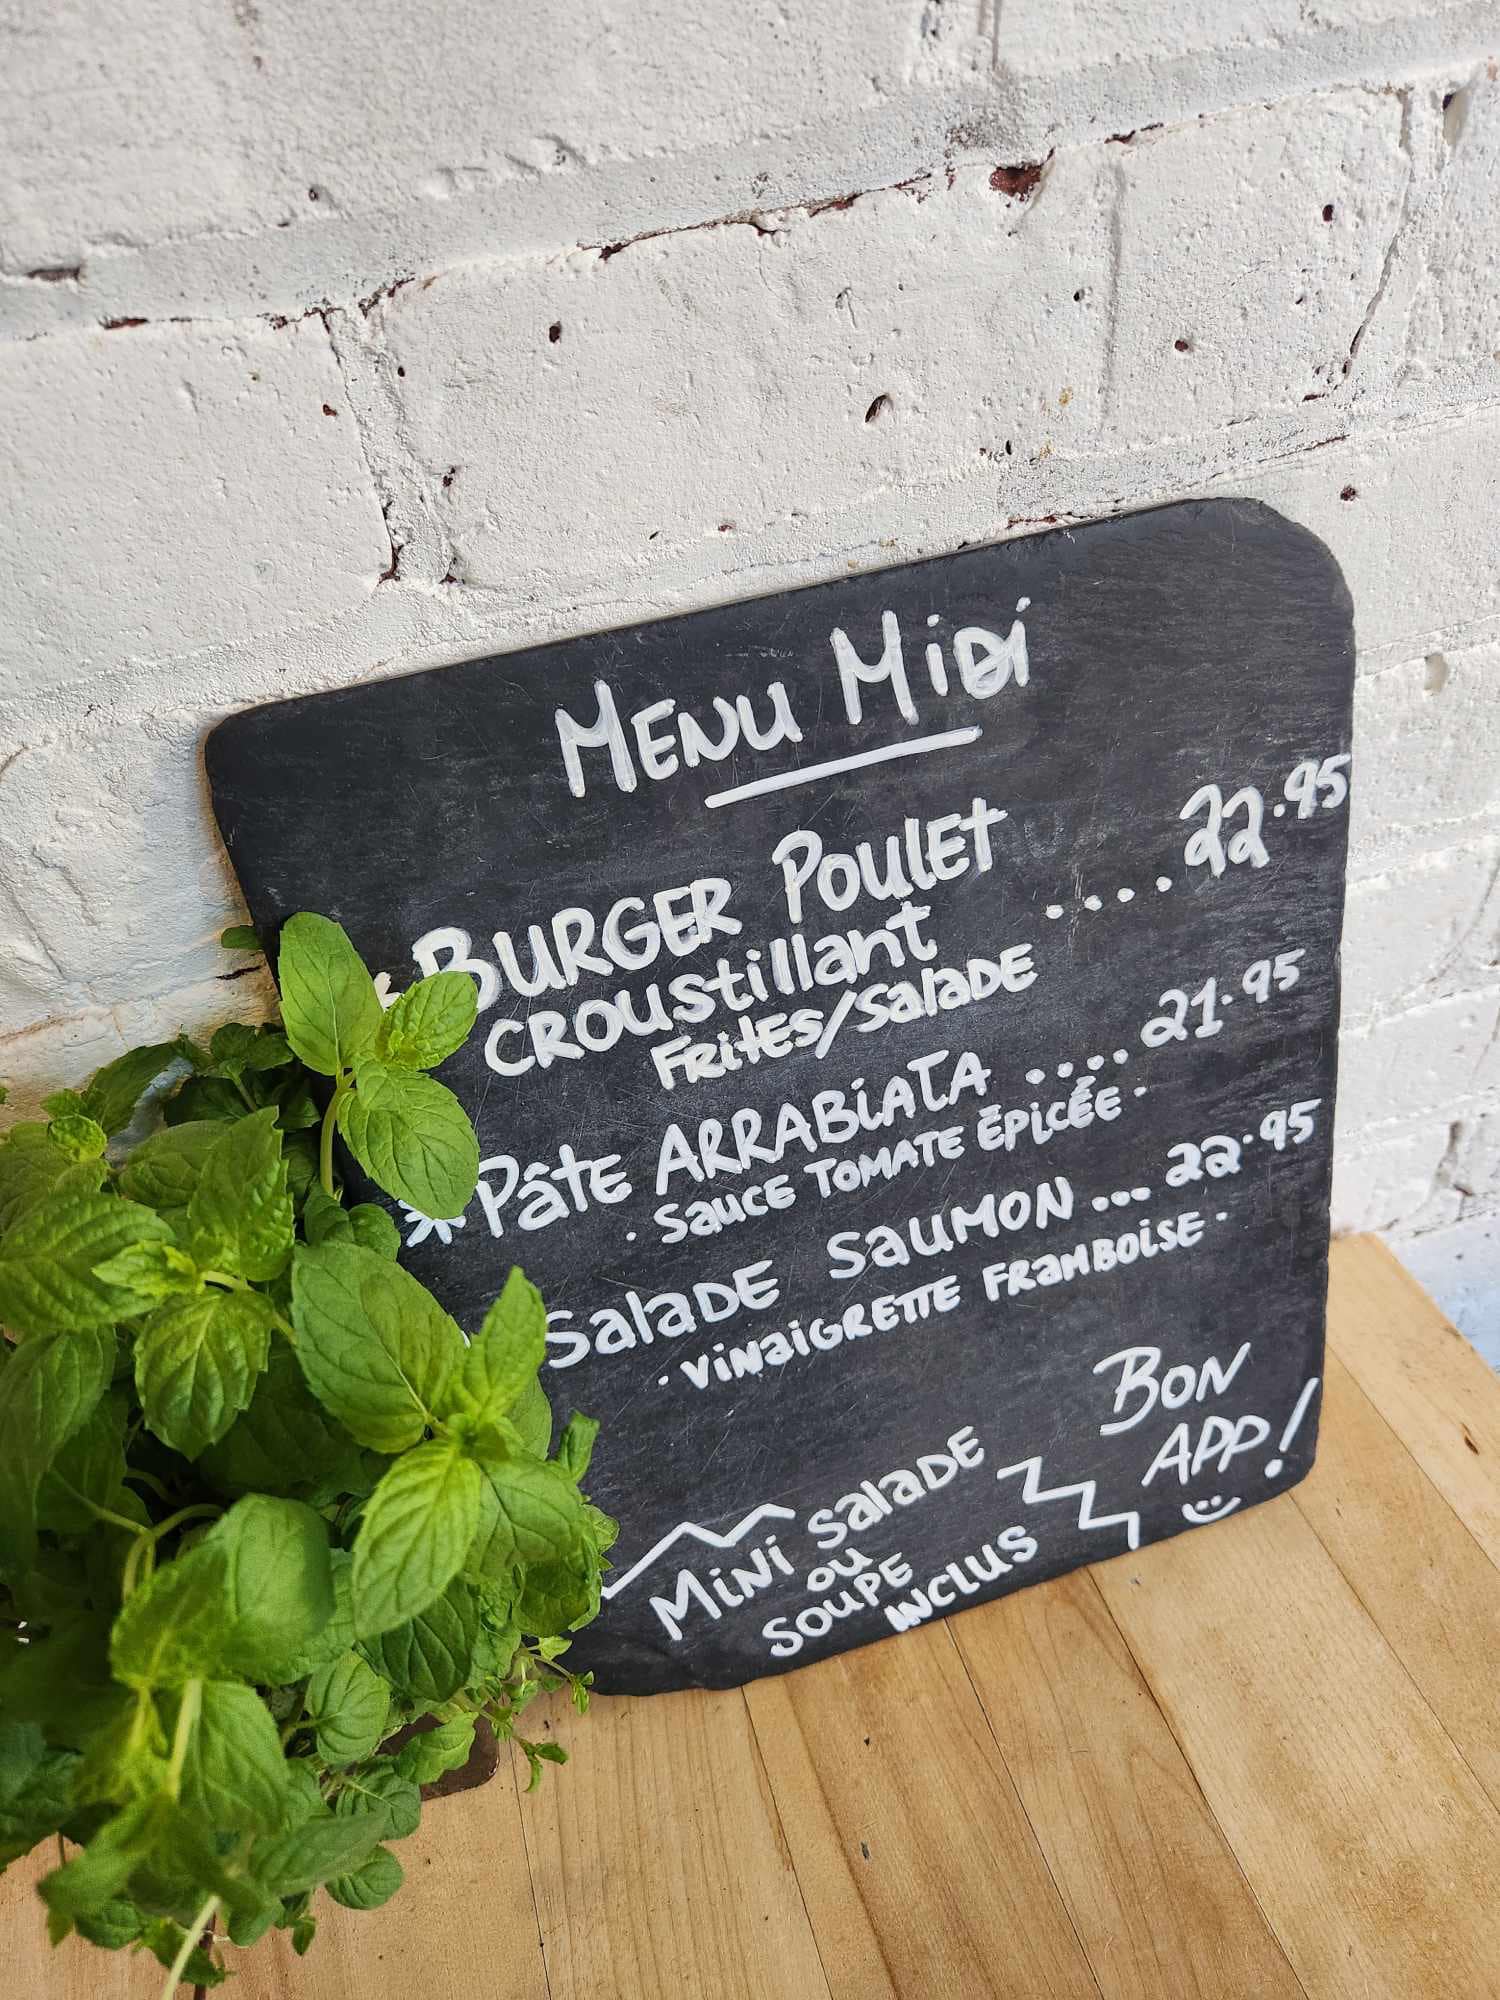 MENU MIDI
BURGER POULET .... 22.95
CROUSTILLANT
FRITES/SALADE
PÂTE ARRABIATA .... 21.95
. SAUCE TOMATE ÉPICÉE .
SALADE SAUMON ... 22.95
. VINAIGRETTE FRAMBOISE .
BON
APP!
MINI SALADE
OU
SOUPE
INCLUS